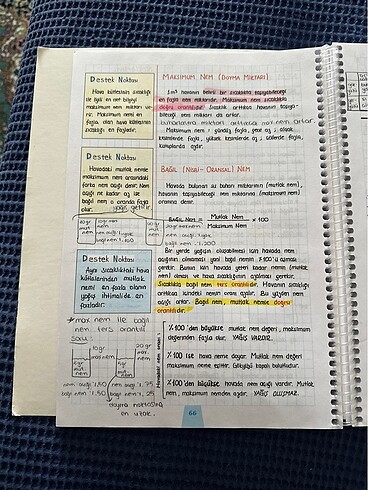 Destek Noktası
Hava kütlesinin sıcaklığı
ile ilgili en net bilgiyi
maksimum nem miktarı ve-
rir. Maksimum nemi en
fazla olan hava kütlesinin
sıcaklığı en fazladır.
MAKSIMUM NEM (DOYMA MİKTARI)
1m³ havanın belirli bir sıcaklıkta taşıyabileceği
en fazla nem miktarıdır. Maksimum nem sıcaklıkla
doğru orantılıdır. Sıcaklık arttıkça havanın taşıya-
bileceği nem miktarı da artar.
buharlaşma miktarı arttıkça max nem artar.
Maksimum nem: gündüz fazla, gece az; alçak
kesimlerde fazla, yüksek kesimlerde az; Göllerde fazla,
kumsallarda azdır.
Destek Noktası
Havadaki mutlak nemle
maksimum nem arasındaki
farka nem açığı denir. Nem
açığı ne kadar az ise
bağıl nem o oranda fazla
olur.
yağış getirir.
BAĞIL (NİSBİ - ORANSAL) NEM
Havada bulunan su buharı miktarının (mutlak nem),
havanın taşıyabileceği nem miktarına (maksimum nem)
oranına denir.
Bağıl Nem = Mutlak Nem / Maksimum Nem x 100
Bir yerde yağışın oluşabilmesi için havada nem
açığının olmaması yani bağıl nemin %100'ü aşması
gerekir. Bunun için havada yeteri kadar nemin (mutlak
nem) olması ve hava sıcaklığının azalması gerekir.
Sıcaklıkla bağıl nem ters orantılıdır. Havanın sıcaklığı
arttıkça içindeki nemin oranı azalır. Bu yüzden nem
açığı artar. Bağıl nem, mutlak nemle doğru
orantılıdır.
Destek Noktası
Aynı sıcaklıktaki hava
kütlelerinden mutlak
nemi en fazla olanın
yağış ihtimali de en
fazladır.
*max nem ile bağıl
nem ters orantılı
soru:
nem açığı %50
bağıl nem %50
nem açığı %75
bağıl nem %25
doyma noktasına
en uzak.
Havadaki nem oranı
%100'den büyükse mutlak nem değeri, maksimum
değerinden fazla olur. YAĞIŞ VARDIR.
%100 ise hava neme doyar. Mutlak nem değeri
maksimum neme eşittir. Gökyüzü kapalı bulutludur.
%100'den küçükse havada nem açığı vardır. Mutlak
nem, maksimum nemden azdır. YAĞIŞ OLUŞMAZ.
66